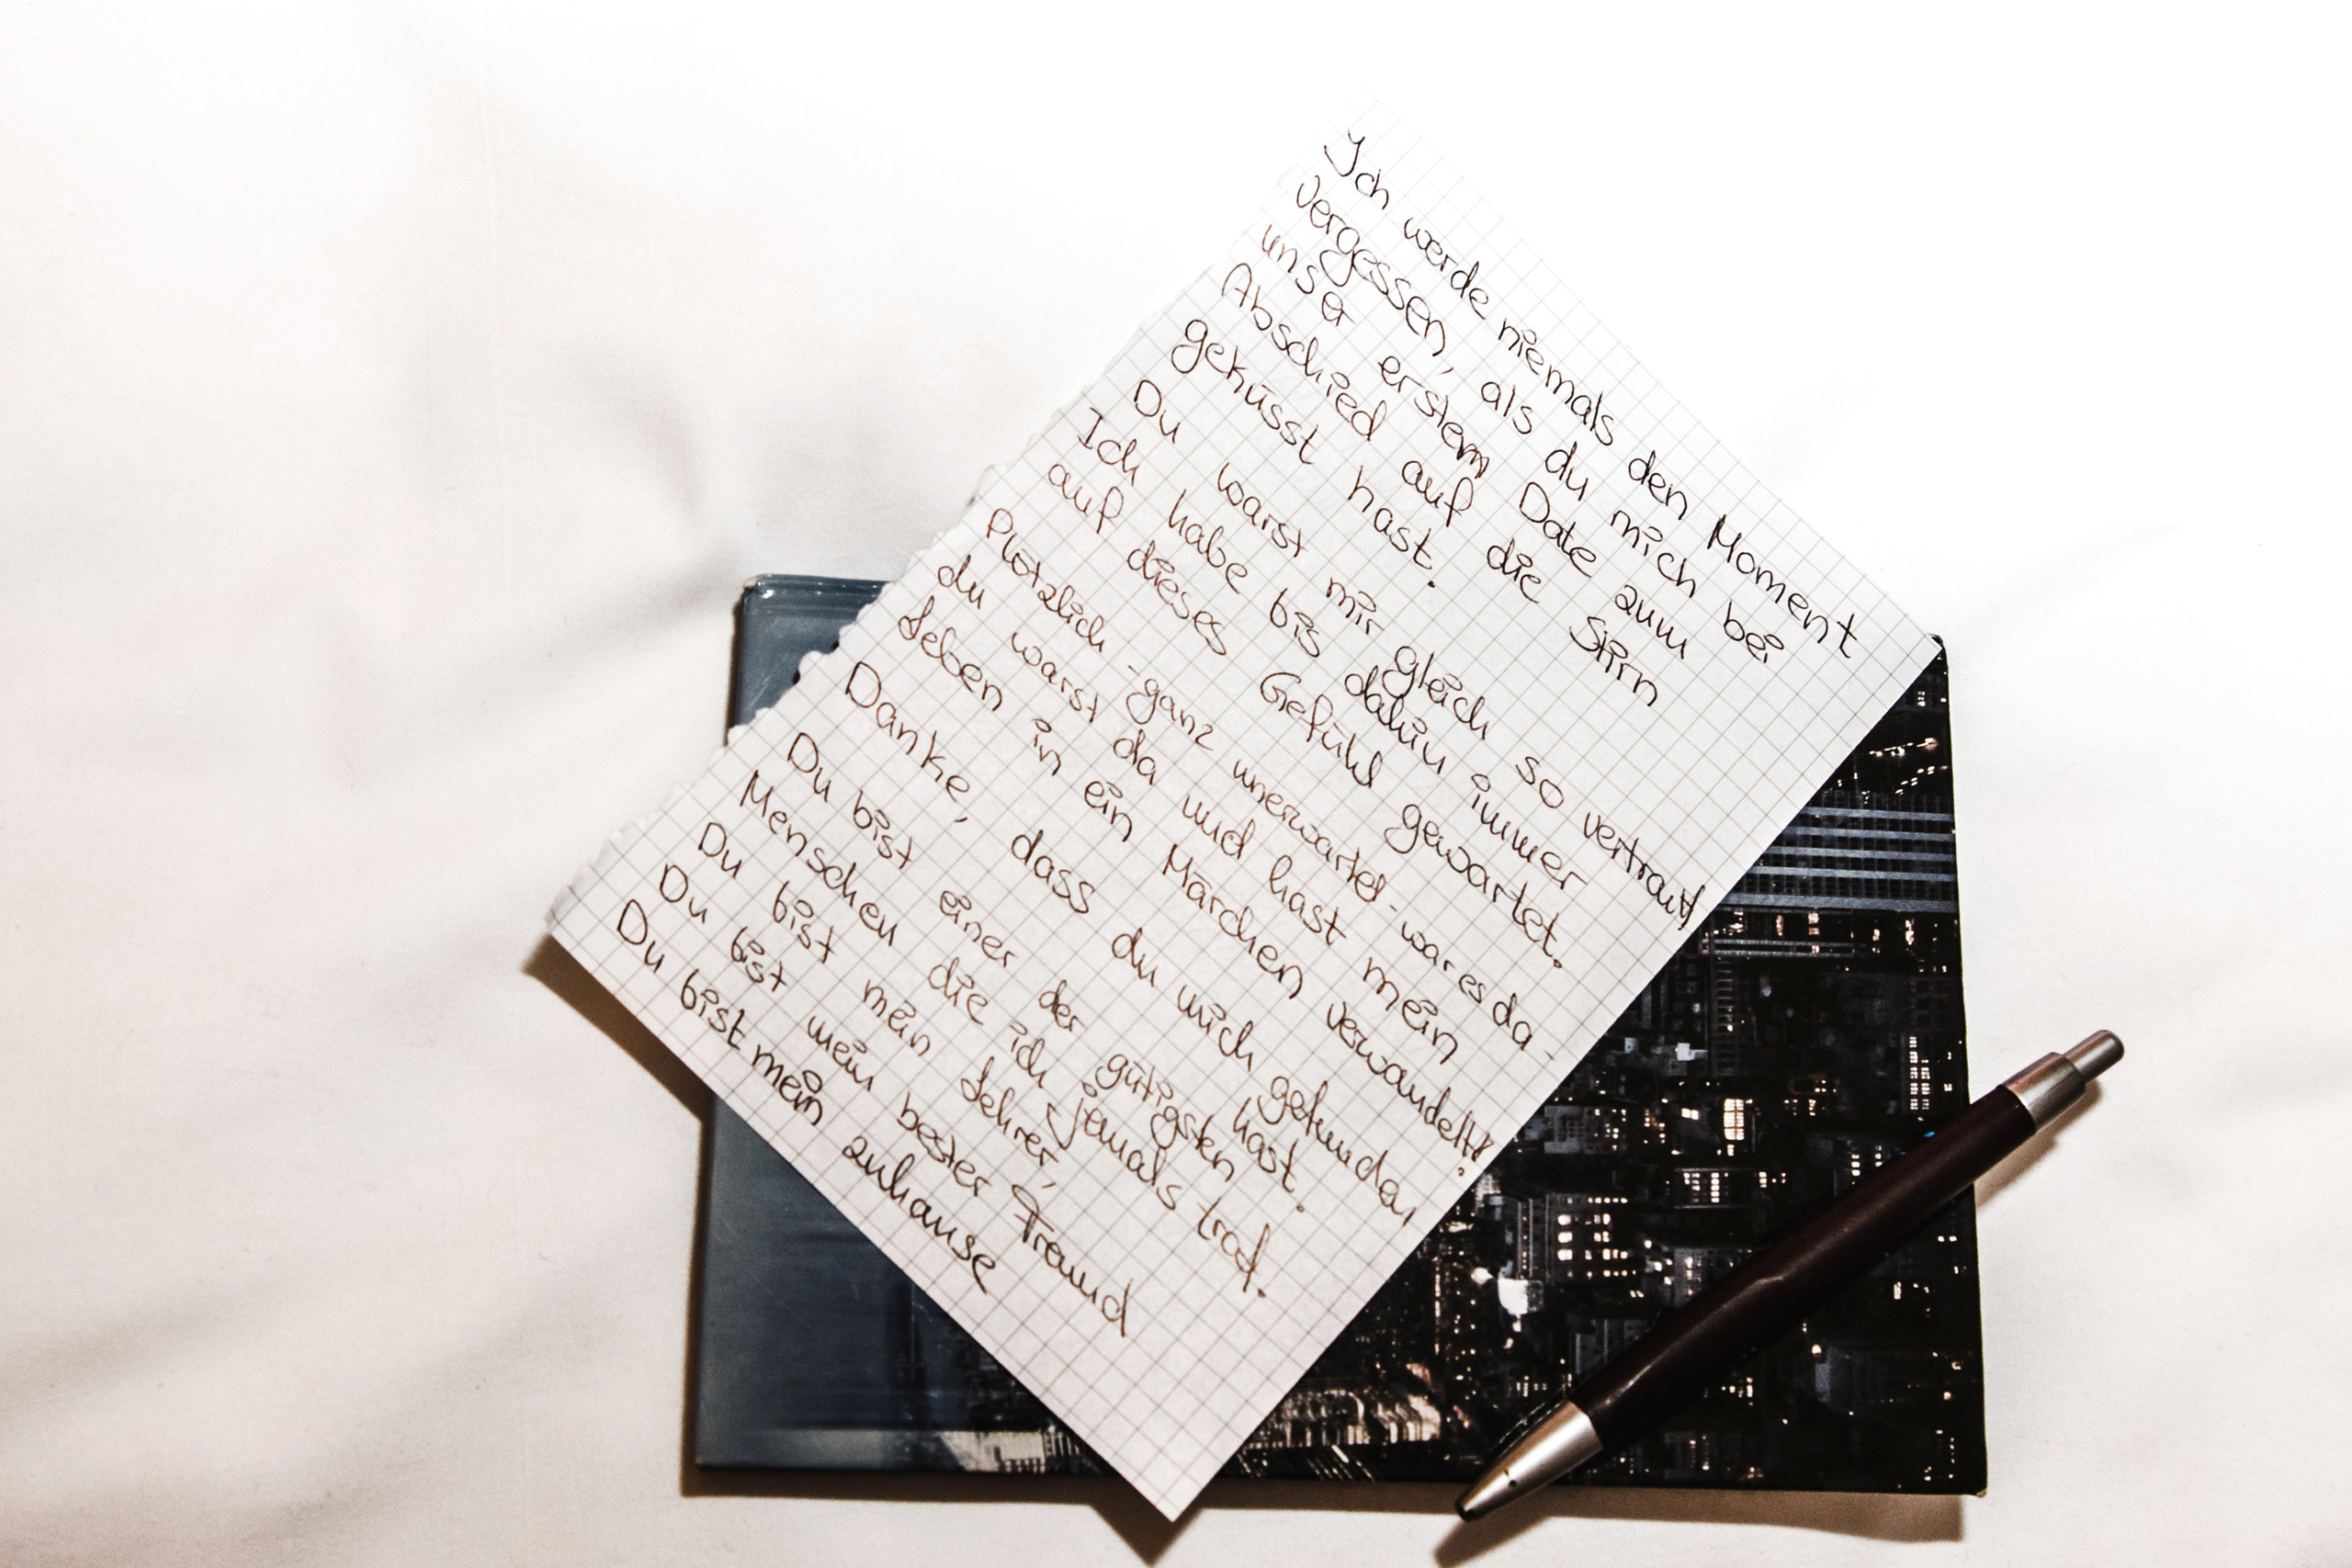 Ich werde niemals den Moment
vergessen, als du mich bei
unser erstem Date zum
Abschied auf die Stirn
geküsst hast.
Du warst mir gleich so vertraut!
Ich habe bis dahin immer
auf dieses Gefühl gewartet.
Plötzlich - ganz unerwartet - war es da -
du warst da und hast mein
Leben in ein Märchen verwandelt!
Danke, dass du mich gefunden
hast.
Du bist einer der gütigsten
Menschen die ich jemals traf.
Du bist mein Lehrer,
Du bist mein bester Freund
Du bist mein zuhause